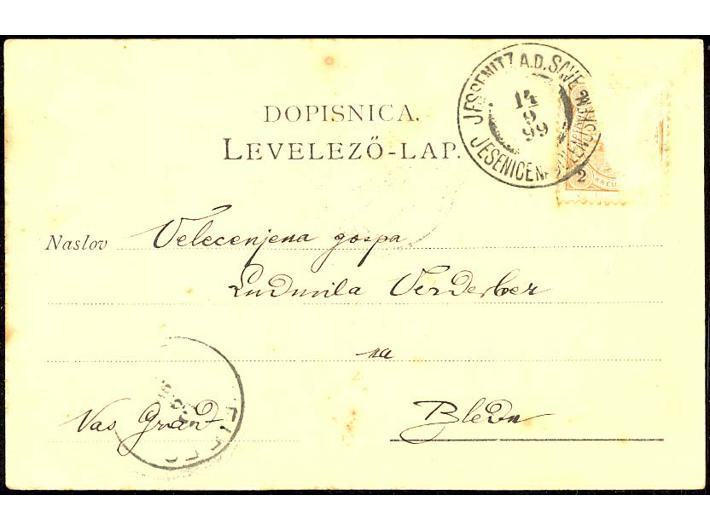 DOPISNICA.
LEVELEZŐ-LAP.
JESSENITZ A.D. SAVE
14
9
99
JESENICE NA
2
Naslov Velecenjena gospa
Ludmila Verderber
na
Vas Grad Bledu